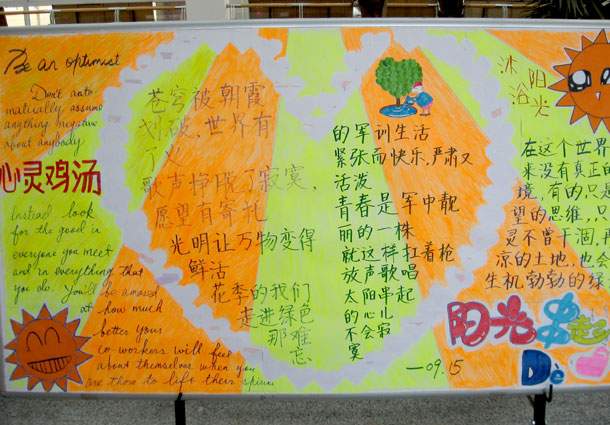 Be an optimist
Don't auto
matically assume
anything negative
about anybody
心灵鸡汤
Instead look
for the good in
everyone you meet
and in everything that
you do. You'll be amazed
at how much
better your
co workers will feel
about themselves when you
are there to lift their spirits
苍穹被朝霞
划破,世界有
了义
歌声挣脱了寂寞,
愿望有寄托
光明让万物变得
鲜活
花季的我们
走进绿色
那难忘
的军训生活
紧张而快乐,严肃又
活泼
青春是军中靓
丽的一株
就这样扛着枪
放声歌唱
太阳串起
的心儿
不会寂
寞
—09.15
沐阳
浴光
在这个世界
来没有真正的
境,有的只
望的思维,只
灵不曾干涸,再
凉的土地,也会
生机勃勃的绿
阳光串起
De